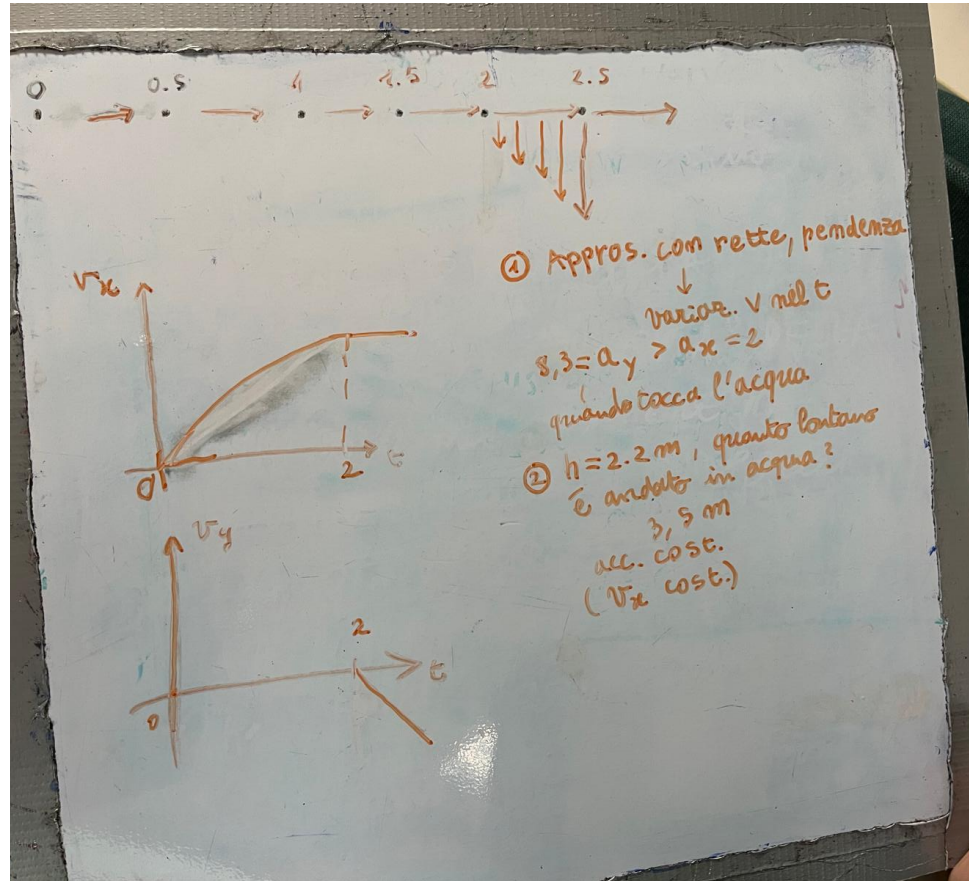 0 0.5 1 1.5 2 2.5
① Appros. con rette, pendenza
↓
variaz. v nel t
8,3 = ay > ax = 2
quando tocca l'acqua
② h = 2.2 m, quanto lontano
è andato in acqua?
3,5 m
acc. cost.
(vx cost.)
vx
0 2 t
vy
2
0 t